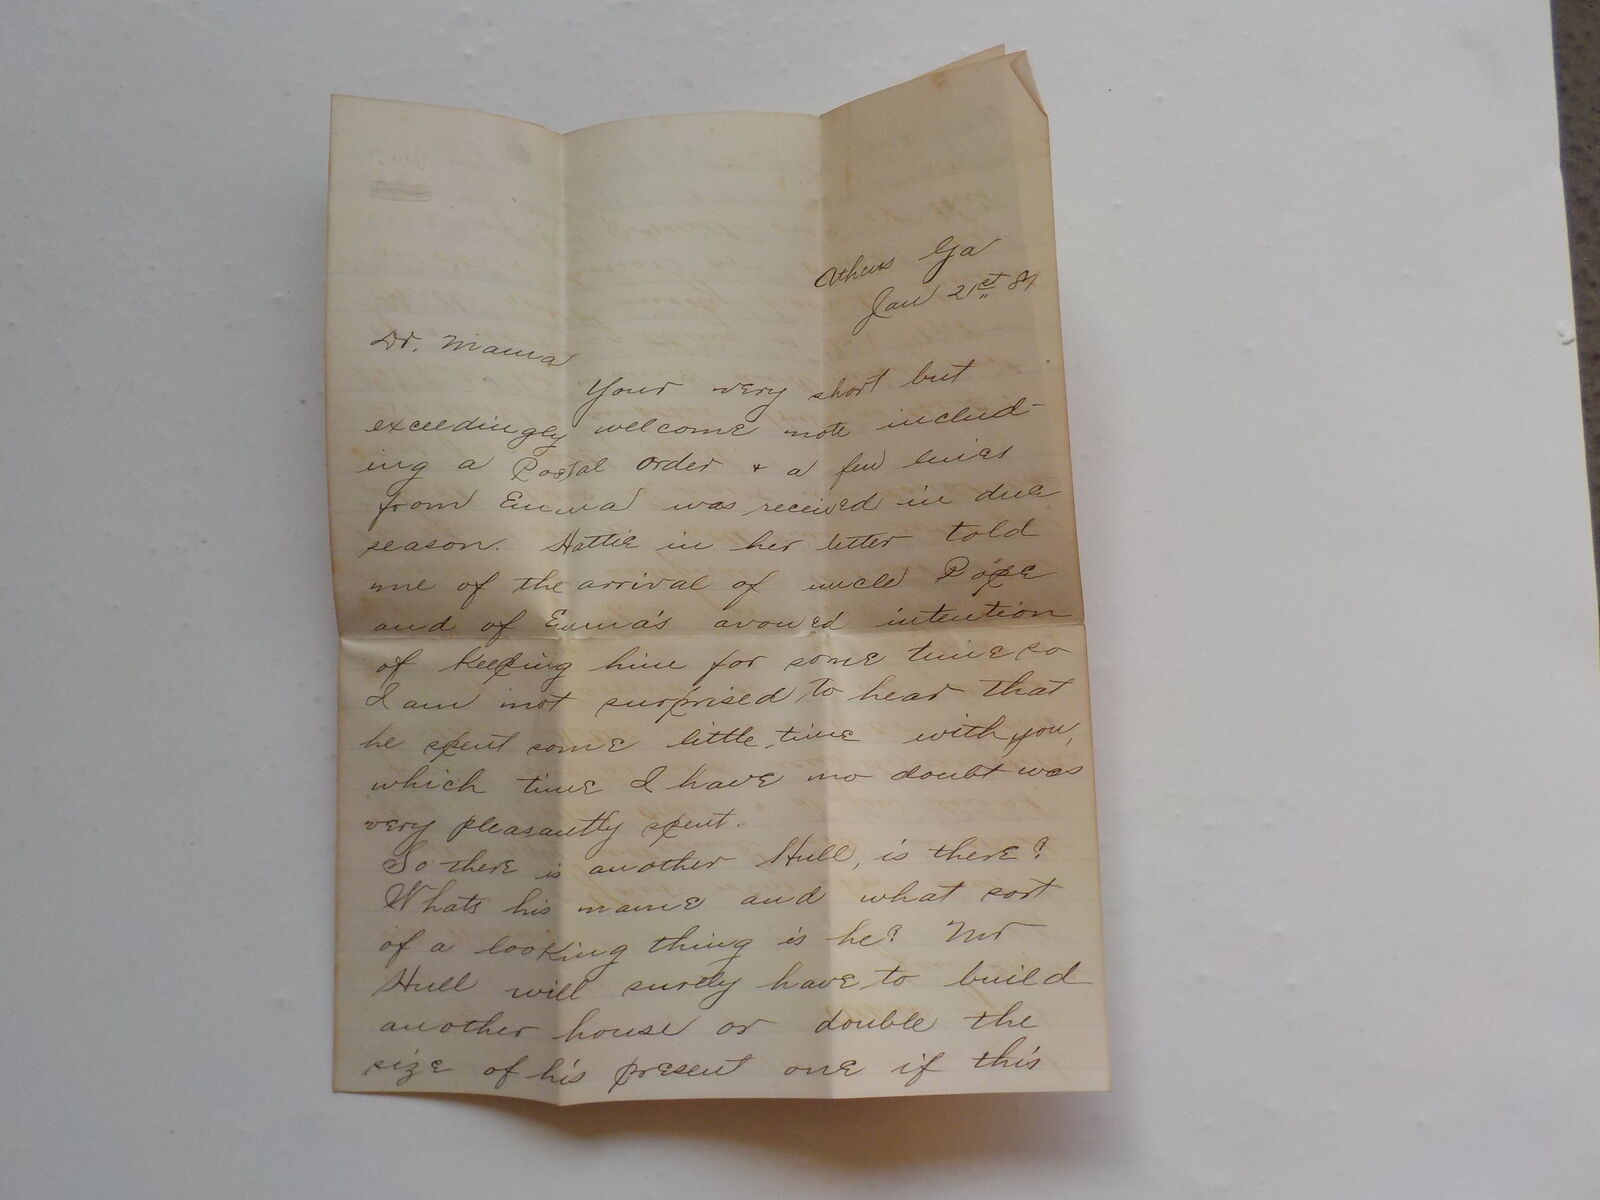 Athens Ga
Jan 21st 87
Dr. Mama
Your very short but
exceedingly welcome note includ-
ing a Postal order & a few lines
from Emma was received in due
season. Hattie in her letter told
me of the arrival of uncle Pope
and of Emma's avowed intention
of keeping him for some time so
I am not surprised to hear that
he spent some little time with you,
which time I have no doubt was
very pleasantly spent.
So there is another Hull, is there?
Whats his name and what sort
of a looking thing is he? Mr
Hull will surely have to build
another house or double the
size of his present one if this